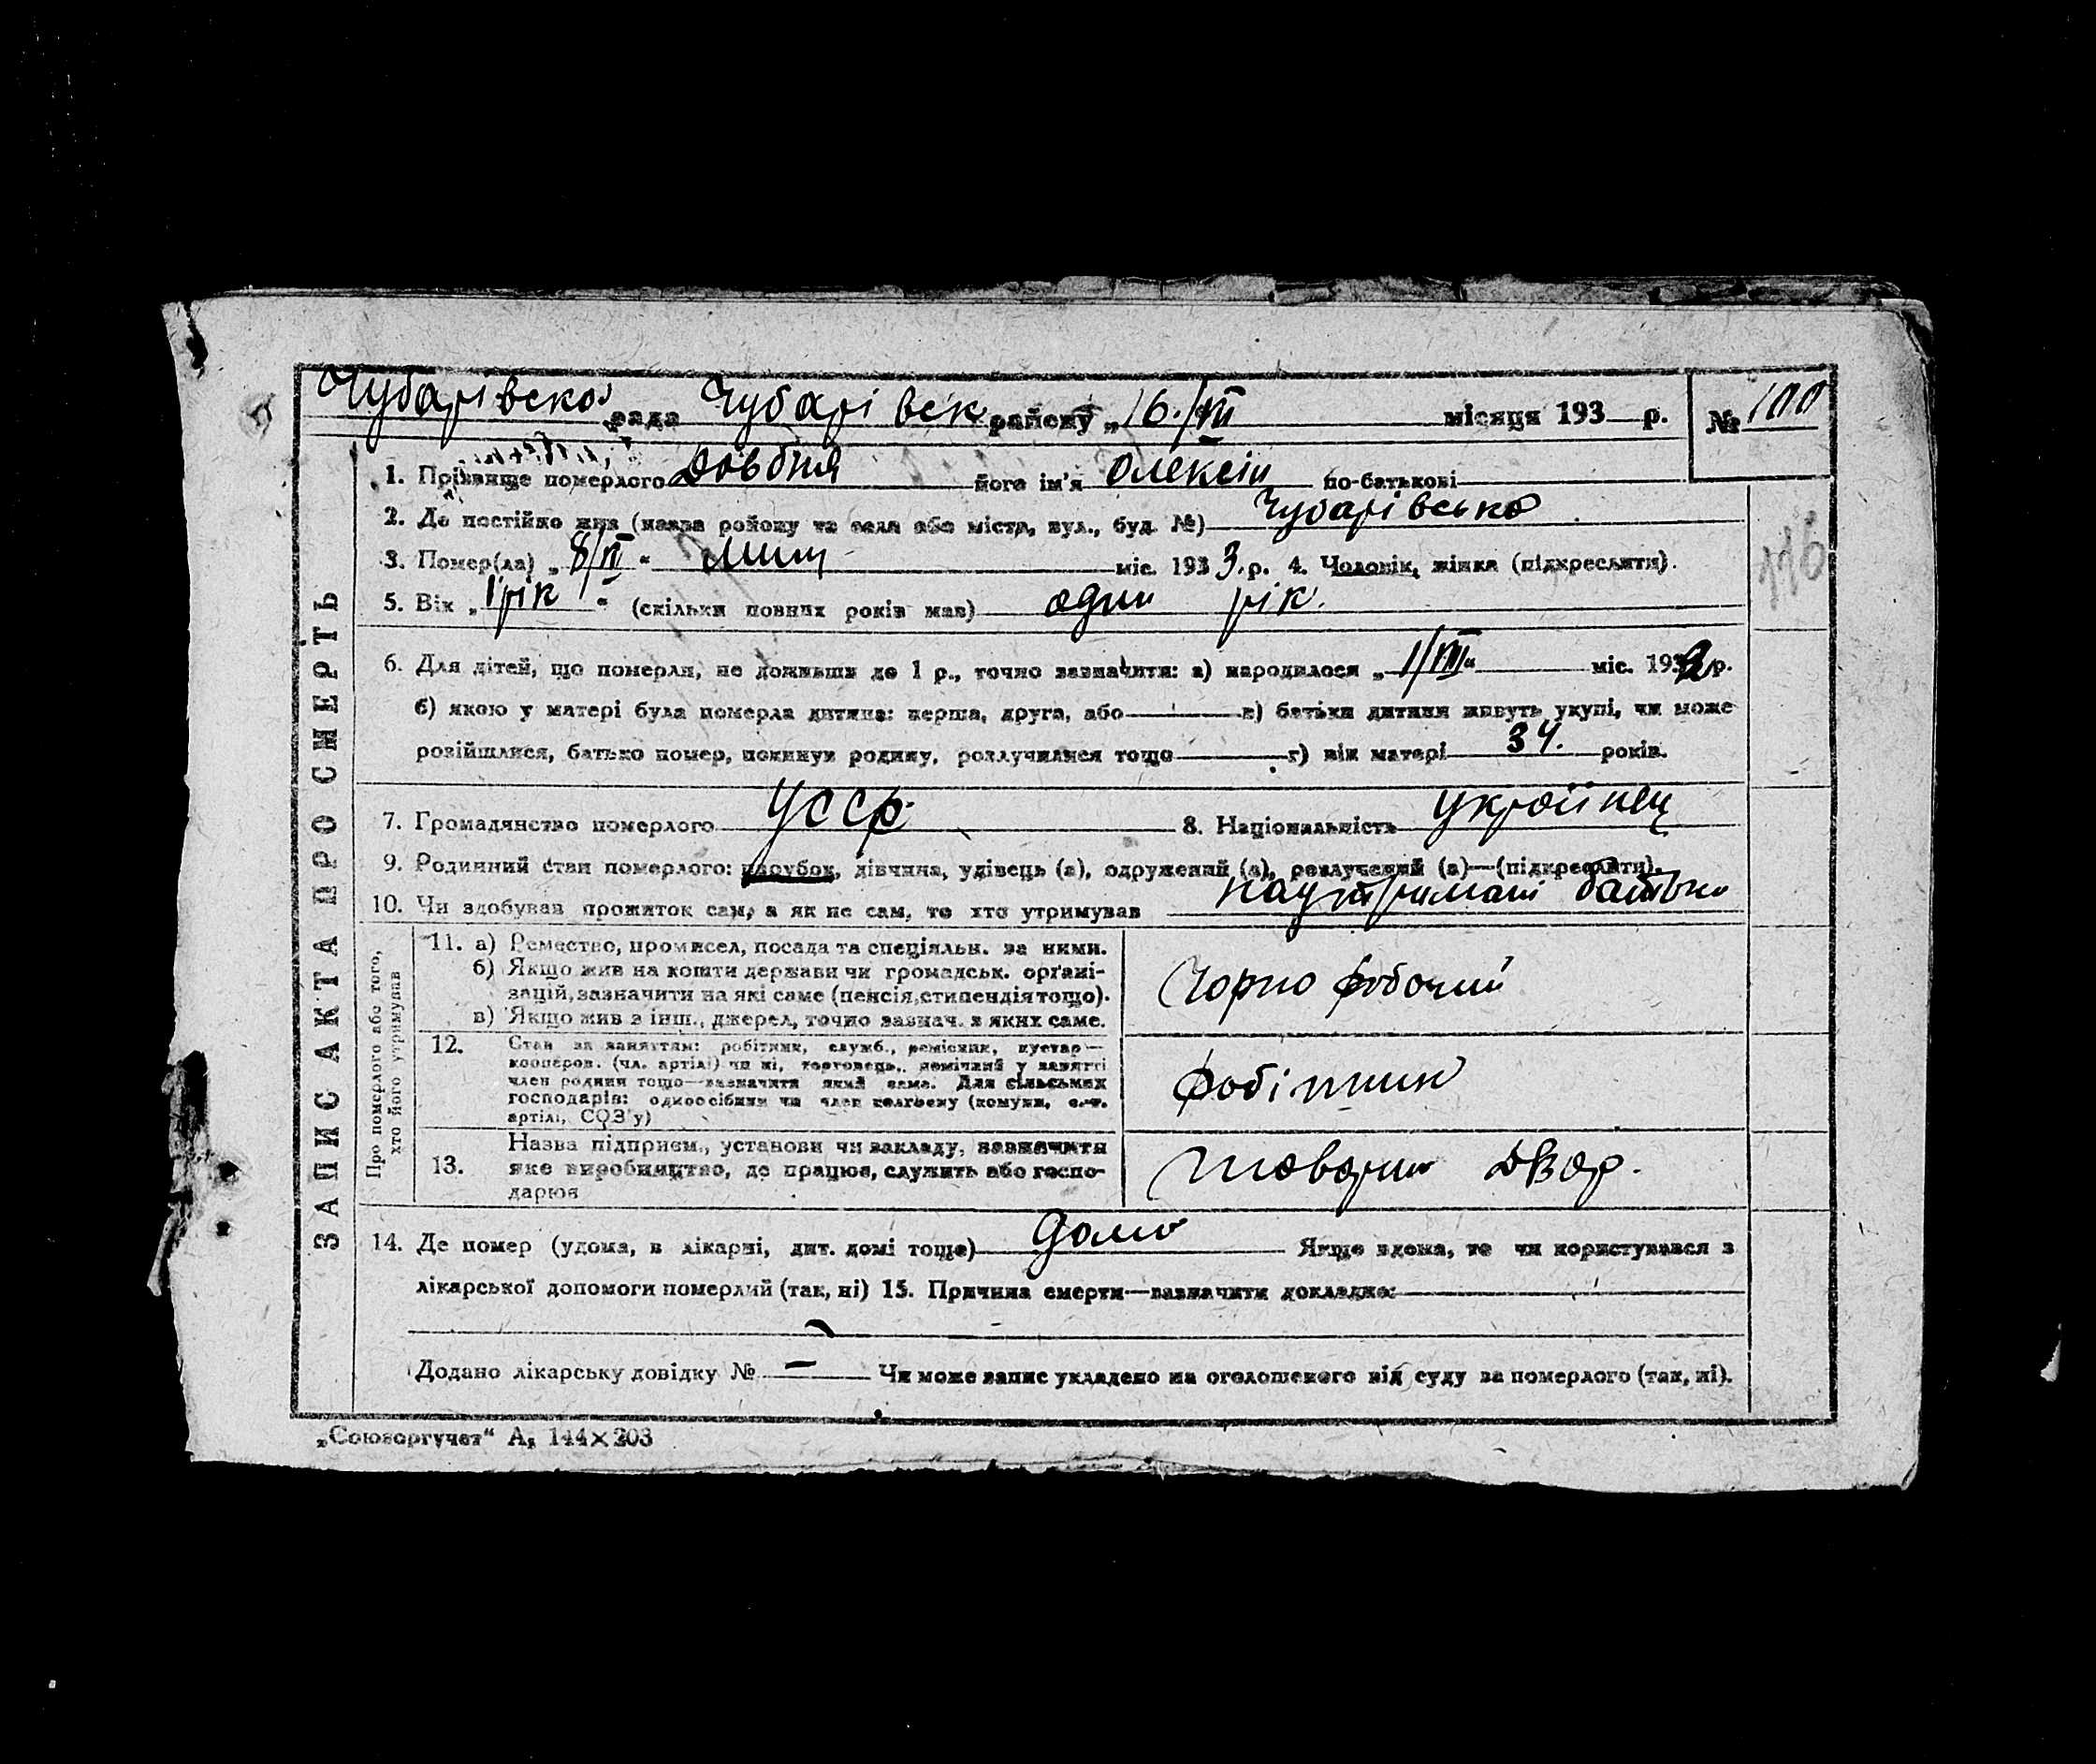 Чубарівсько рада Чубарівськ району „16./VII місяця 193 р. № 100
1. Прізвище померлого Довбня його ім'я Олексій по-батькові
2. Де постійно жив (назва району та села або міста, вул., буд. №) Чубарівсько
3. Помер(ла) „8/VI“ міс. 193 3. р. 4. Чоловік, жінка (підкреслити).
5. Вік „1 рік“ (скільки повних років мав) один рік.
6. Для дітей, що померли, не доживши до 1 р., точно зазначити: а) народилося „1/VIII“ міс. 1932 р.
б) якою у матері була померла дитина: перша, друга, або в) батьки дитини живуть укупі, чи може
розійшлися, батько помер, покинув родину, розлучилися тощо г) вік матері 34. років.
7. Громадянство померлого УССР 8. Національність українец
9. Родинний стан померлого: парубок, дівчина, удівець (а), одружений (а), розлучений (а)—(підкреслити).
10. Чи здобував прожиток сам, а як не сам, то хто утримував на утримані батьки
ЗАПИС АКТА ПРО СМЕРТЬ
Про померлого або того,
хто його утримував
11. а) Ремество, промисел, посада та спеціяльн. за ними.
б) Якщо жив на кошти держави чи громадськ. органі-
зацій, зазначити на які саме (пенсія, стипендія тощо).
в) Якщо жив з інш., джерел, точно зазнач. з яких саме.
Чорно робочий
12. Стан за заняттям: робітник, служб., ремісник, кустар—
кооперов. (чл. артілі) чи ні, торговець, помічний у занятті
член родини тощо—зазначити який саме. Для сільських
господарів: одноосібник чи член колгоспу (комуни, с.-г.
артілі, СОЗ'у)
робітник
13. Назва підприєм., установи чи закладу, зазначити
яке виробництво, де працює, служить або госпо-
дарює
товарни двор.
14. Де помер (удома, в лікарні, дит. домі тощо) дома Якщо вдома, то чи користувався з
лікарської допомоги померлий (так, ні) 15. Причина смерти—зазначити докладно:
Додано лікарську довідку № — Чи може запис укладено на оголошеного від суду за померлого (так, ні).
„Союзоргучет“ А, 144×203
116